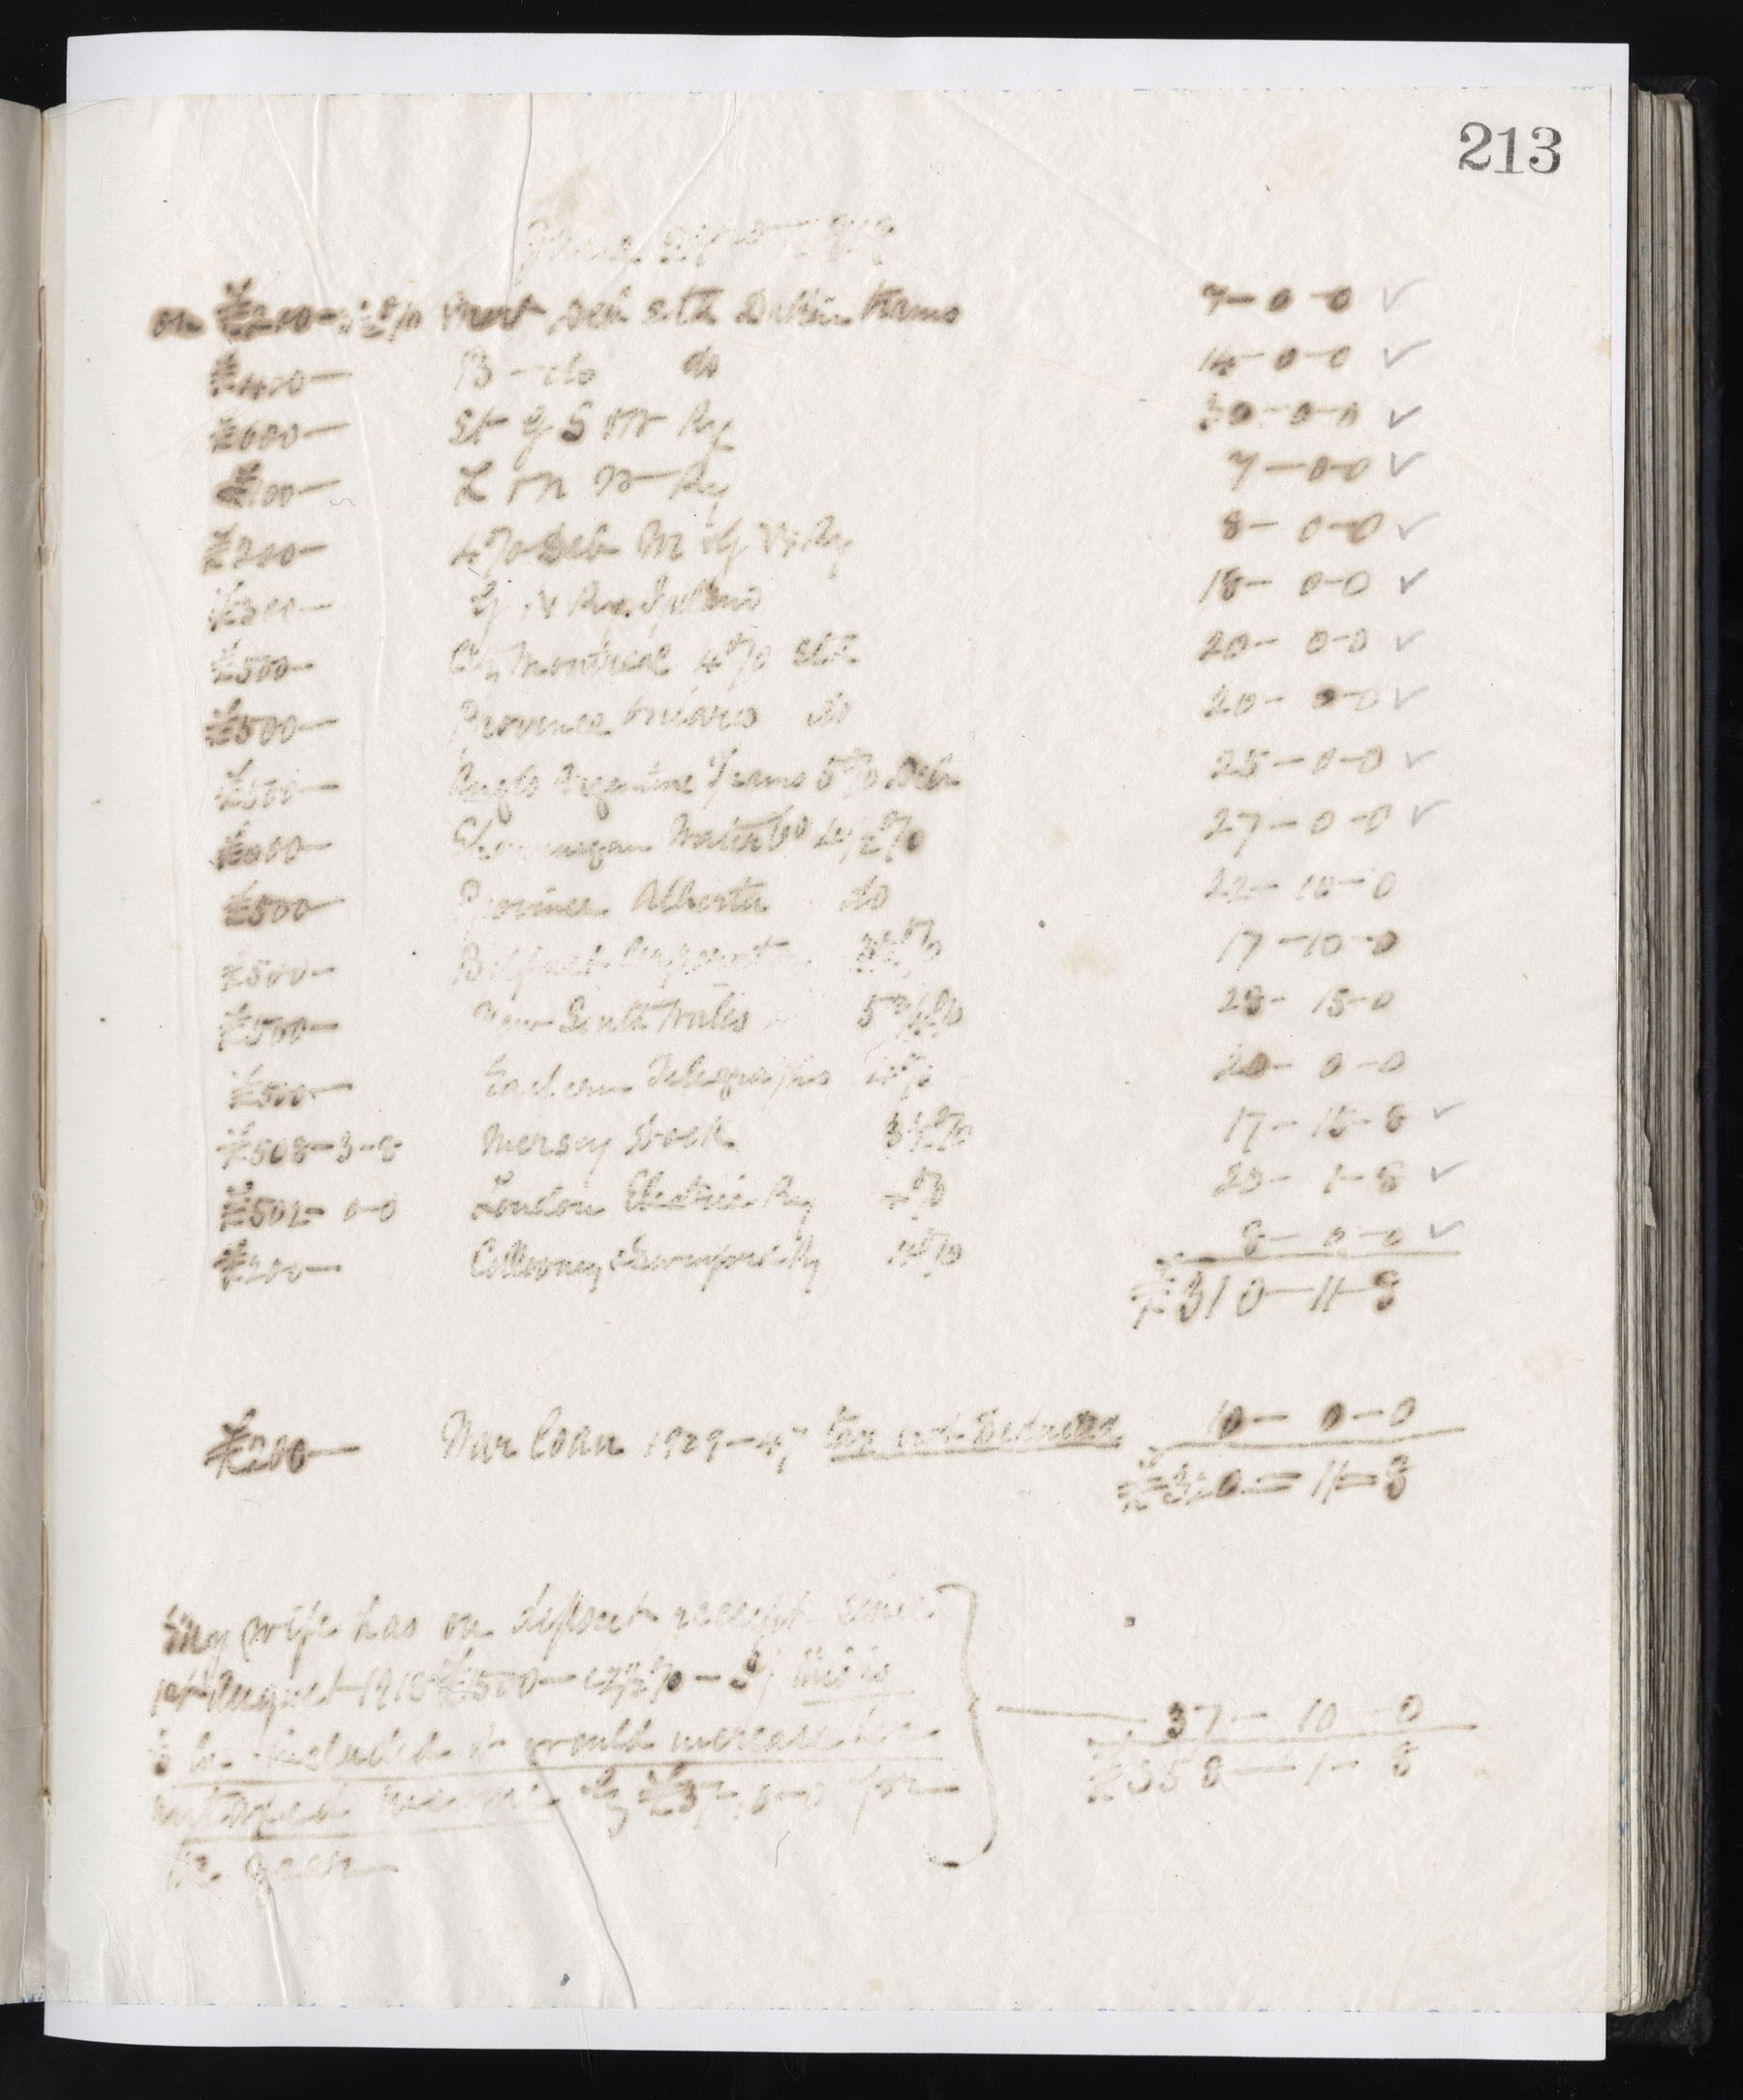 213
on £200 - 3½% Mort Deb Stk Dublin Trams 7-0-0 ✓
£400- B - do do 14-0-0 ✓
£600- St G S W Ry 30-0-0 ✓
£ 00- L N W Ry 7-0-0 ✓
£200- 4% Deb M G W Ry 8-0-0 ✓
G N Ry Ireland 18-0-0 ✓
£500- City Montreal 4% Stk 20-0-0 ✓
£500- Province Ontario do 20-0-0 ✓
£500- Anglo Argentine Trams 5% Deb 25-0-0 ✓
£600- Shawinigan Water Co 4½% 27-0-0 ✓
£500- Province Alberta do 22-10-0
£500- Belfast Corporation 3½% 17-10-0
£500- New South Wales 5¾% 28-15-0
£500- Eastern Telegraphs 4% 20-0-0
£508-3-8 Mersey Dock 3½% 17-15-8 ✓
£502-0-0 London Electric Ry 4% 20-1-8 ✓
£200- Collooney & Swinford Ry 4% 8-0-0 ✓
£310-11-8
£200- War Loan 1929-47 tax not deducted 10-0-0
£320=11=8
My wife has on deposit receipt since
1st August 1918 £500- - If this is
to be included it would increase her
income by £37-10-0 for 37-10-0
the year £358-1-8